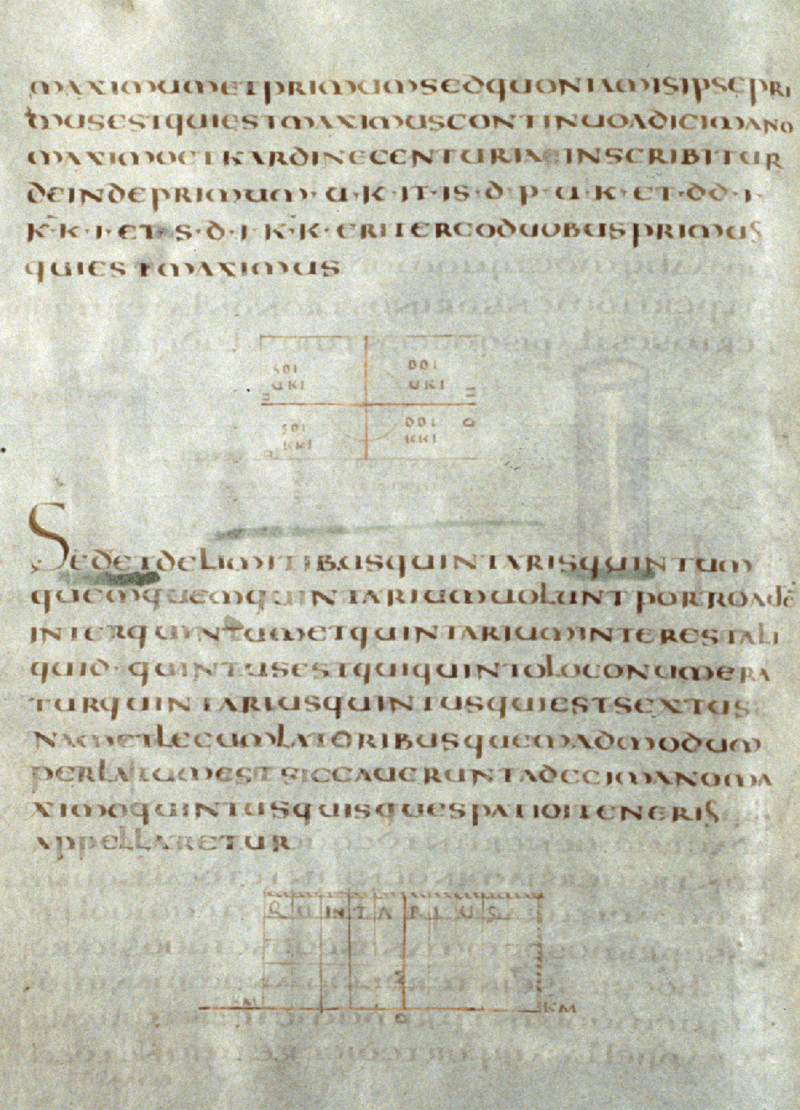 MAXIMUMETPRIMUMSEDQUONIAMISIPSEPRI
MUSESTQUIESTMAXIMUSCONTINUOADICIMANO
MAXIMOETKARDINECENTURIAEINSCRIBITUR
DEINDEPRIMUM·U·K·IT·IS·D·P·U·K·ET·DD·I·
K·K·I·ET·S·D·I·K·K·ERITERGODUOBUSPRIMUS
QUIESTMAXIMUS
SDI DDI
UKI UKI
SDI DDI
KKI KKI
SEDETDELIMITIBUSQUINTARISQUINTUM
QUEMQUEMQUINTARIUMUOLUNTPORROADE
INTERQUINTUMETQUINTARIUMINTERESTALI
QUID·QUINTUSESTQUIQUINTOLOCONUMERA
TURQUINTARIUSQUINTUSQUIESTSEXTUS
PERLATUMESTSICCAUERUNTADECIMANOMA
XIMOQUINTUSQUISQUESPATIOITENERIS
APPELLARETUR
Q U IN T A R I U S
KM KM